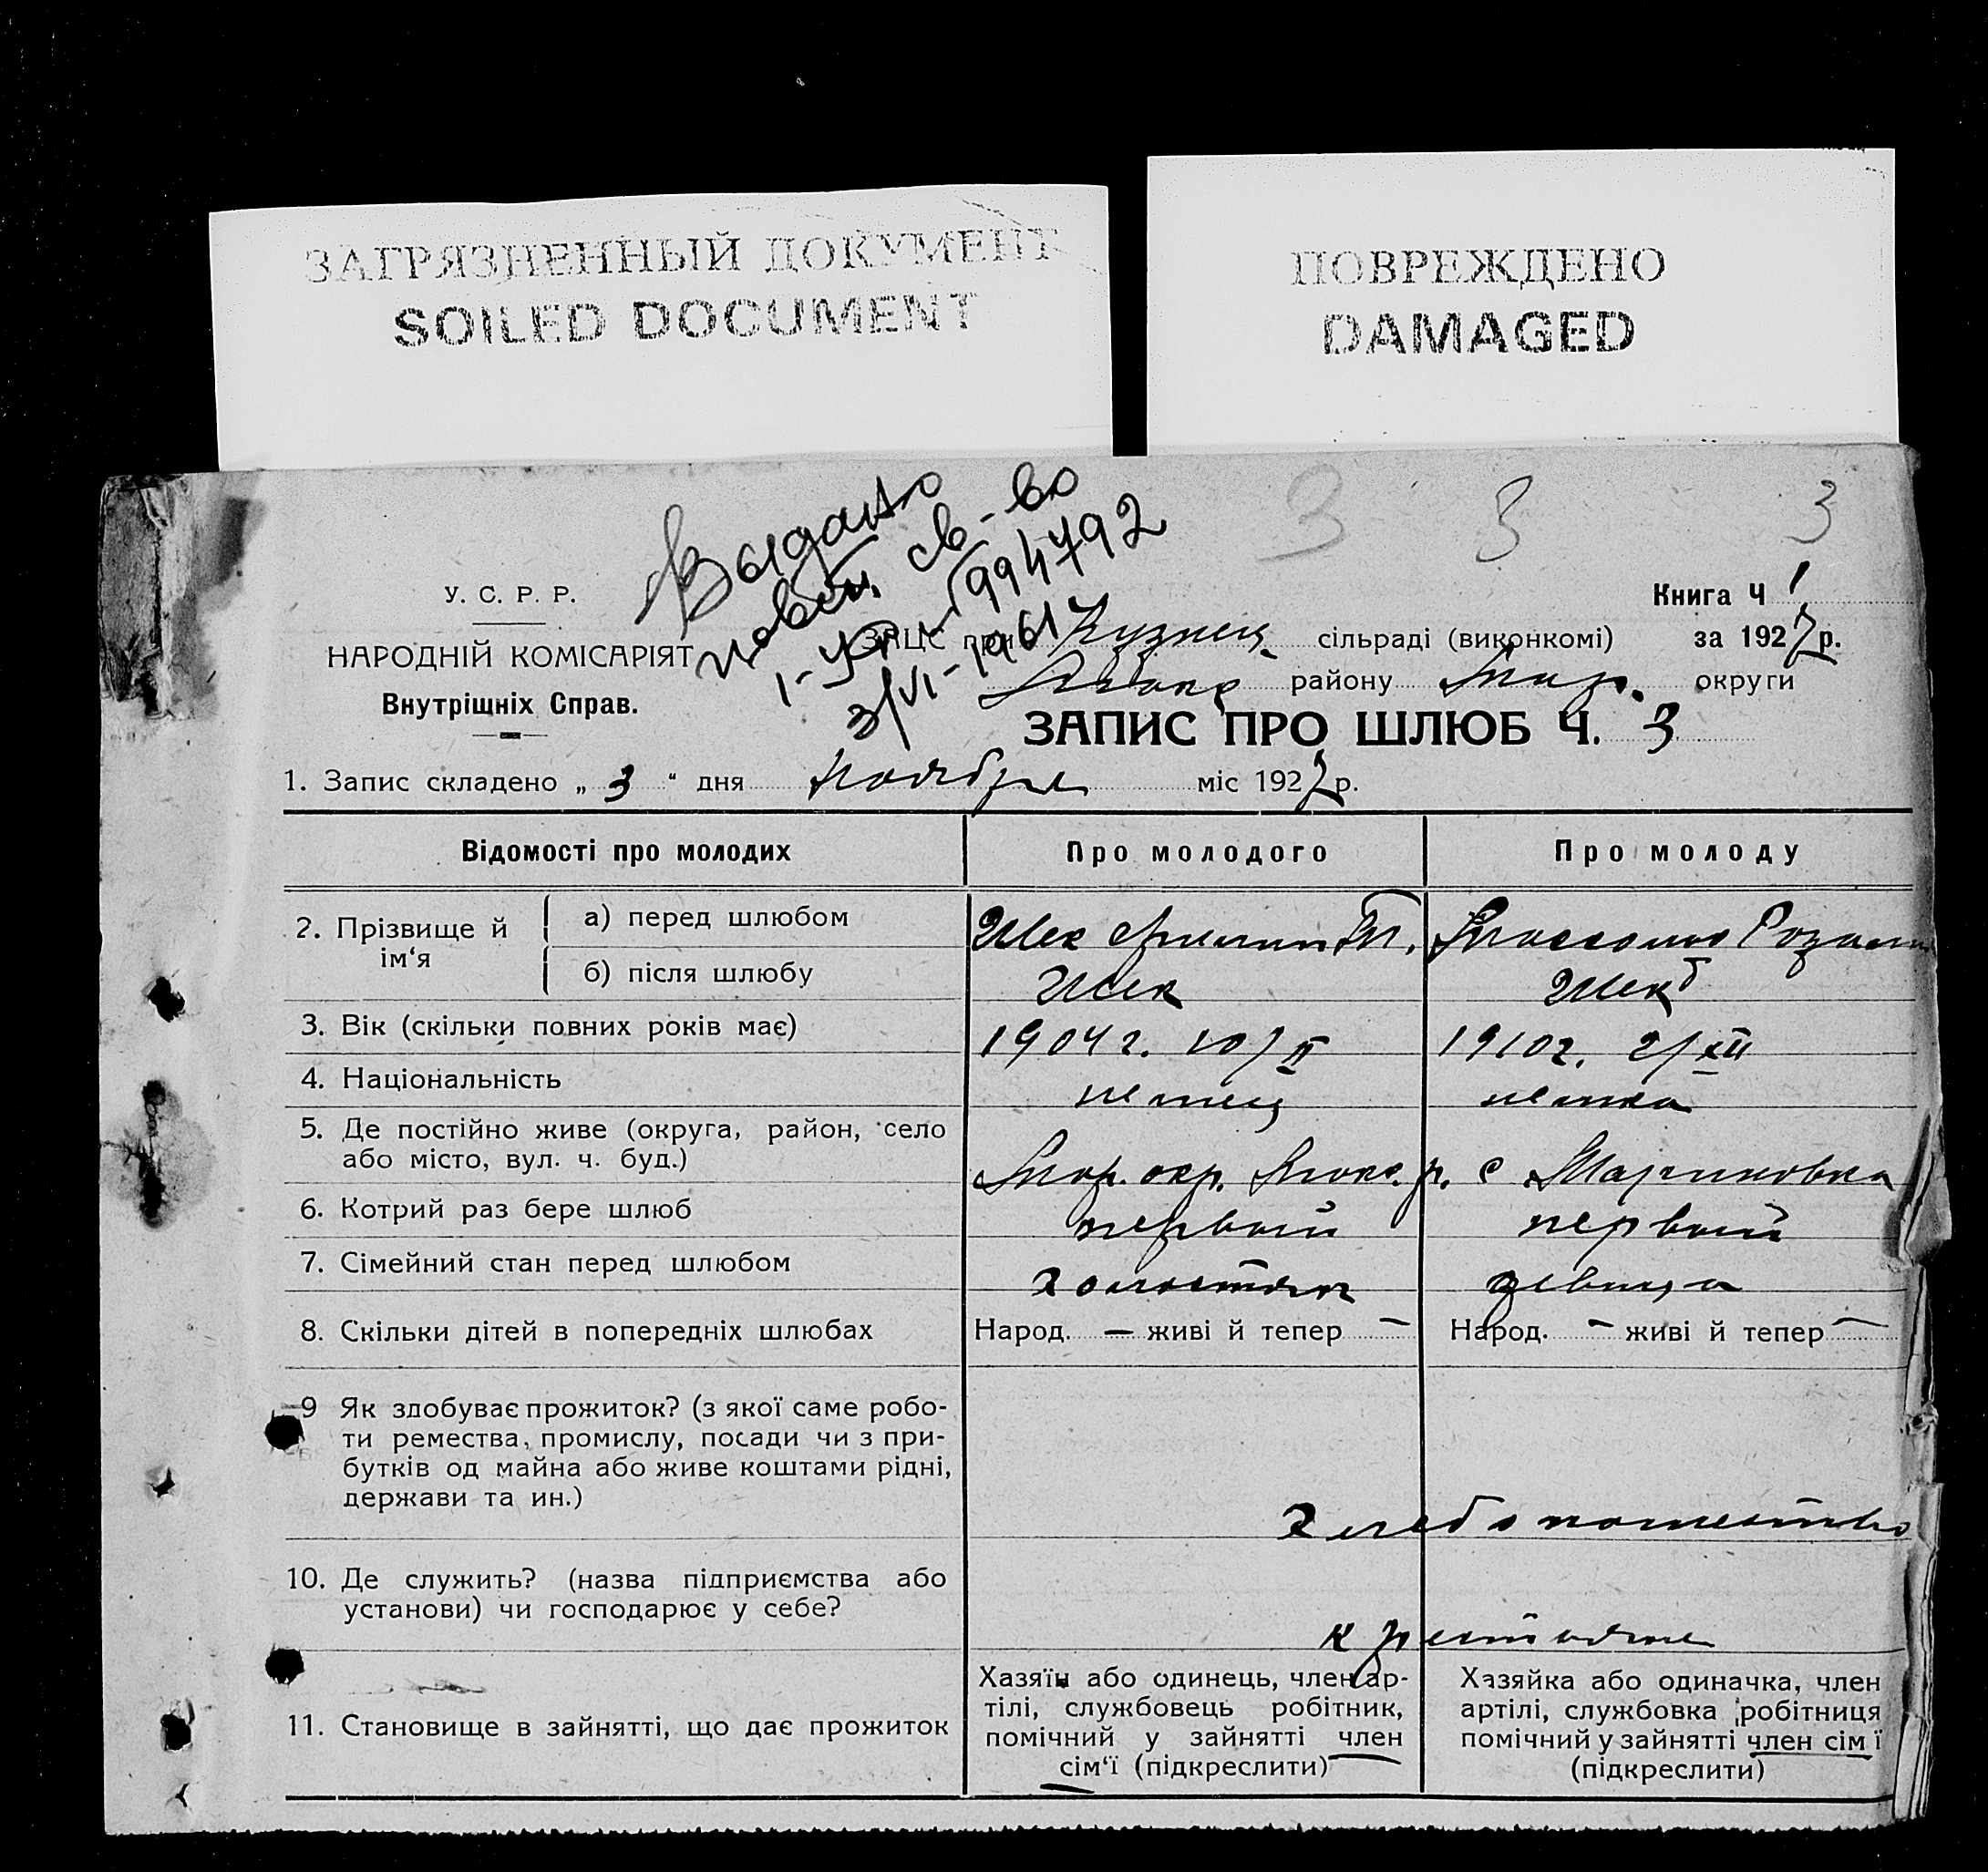 ЗАГРЯЗНЕННЫЙ ДОКУМЕНТ
SOILED DOCUMENT
ПОВРЕЖДЕНО
DAMAGED
3 3 3
Выдано
св-во
994792
3/VI-1961
У. С. Р. Р.
НАРОДНІЙ КОМІСАРІЯТ
Внутрішніх Справ.
Книга Ч 1
ЗАЦС при Кузнец. сільраді (виконкомі) за 1927 р.
району Мар. округи
ЗАПИС ПРО ШЛЮБ Ч. 3
1. Запис складено „ 3 “ дня ноября міс 1927 р.
Відомості про молодих
Про молодого
Про молоду
2. Прізвище й ім‘я
а) перед шлюбом
Шек
б) після шлюбу
Шек
Шек
3. Вік (скільки повних років має)
1904 г. 10/II
1910 г. 2/XII
4. Національність
немец
немка
5. Де постійно живе (округа, район, село
або місто, вул. ч. буд.)
Мар. окр. р. с. Мариновка
6. Котрий раз бере шлюб
первый
первый
7. Сімейний стан перед шлюбом
холостяк
девица
8. Скільки дітей в попередніх шлюбах
Народ. — живі й тепер —
Народ. — живі й тепер —
9 Як здобуває прожиток? (з якої саме робо-
ти ремества, промислу, посади чи з при-
бутків од майна або живе коштами рідні,
держави та ин.)
хлебопашество
10. Де служить? (назва підприємства або
установи) чи господарює у себе?
крестьяне
11. Становище в зайнятті, що дає прожиток
Хазяїн або одинець, член ар-
тілі, службовець робітник,
помічний у зайнятті член
сім‘ї (підкреслити)
Хазяйка або одиначка, член
артілі, службовка робітниця
помічний у зайнятті член сім ї
(підкреслити)